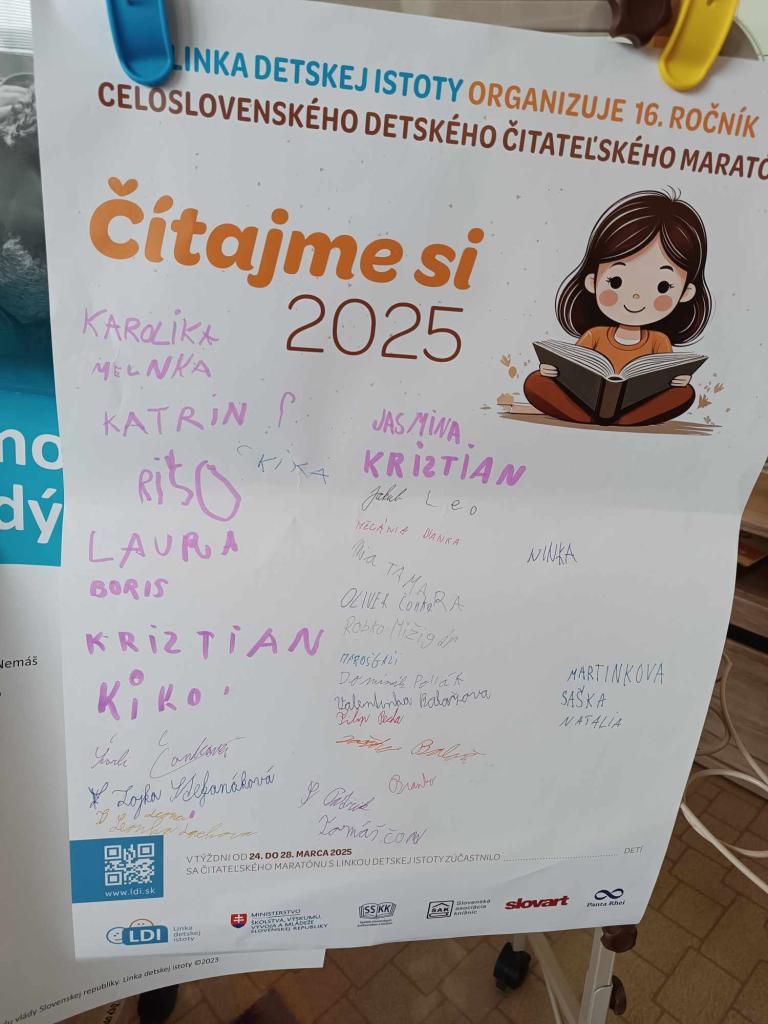 LINKA DETSKEJ ISTOTY ORGANIZUJE 16. ROČNÍK
CELOSLOVENSKÉHO DETSKÉHO ČITATEĽSKÉHO MARATÓ
Čítajme si
2025
KAROLIKA
KATRIN
KIKA
RIŠO
LAURA
BORIS
KRIZTIAN
KIKO
JASMINA
KRIZTIAN
Jakub Leo
DANKA
NINKA
Nia TAMARA
OLIVER
Robko Mižigár
Dominik Pollák
Valentínka
Filip
MARTINKOVA
SAŠKA
NATÁLIA
Štefanáková
Branko
Tomáš ČON
V TÝŽDNI OD 24. DO 28. MARCA 2025
SA ČITATEĽSKÉHO MARATÓNU S LINKOU DETSKEJ ISTOTY ZÚČASTNILO DETÍ
www.ldi.sk
LDI Linka detskej istoty
MINISTERSTVO
ŠKOLSTVA, VÝSKUMU,
VÝVOJA A MLÁDEŽE
SLOVENSKEJ REPUBLIKY
SSKK
SAK Slovenská asociácia knižníc
slovart
Panta Rhei
mo
dý
Nemáš
du vlády Slovenskej republiky. Linka detskej istoty ©2023